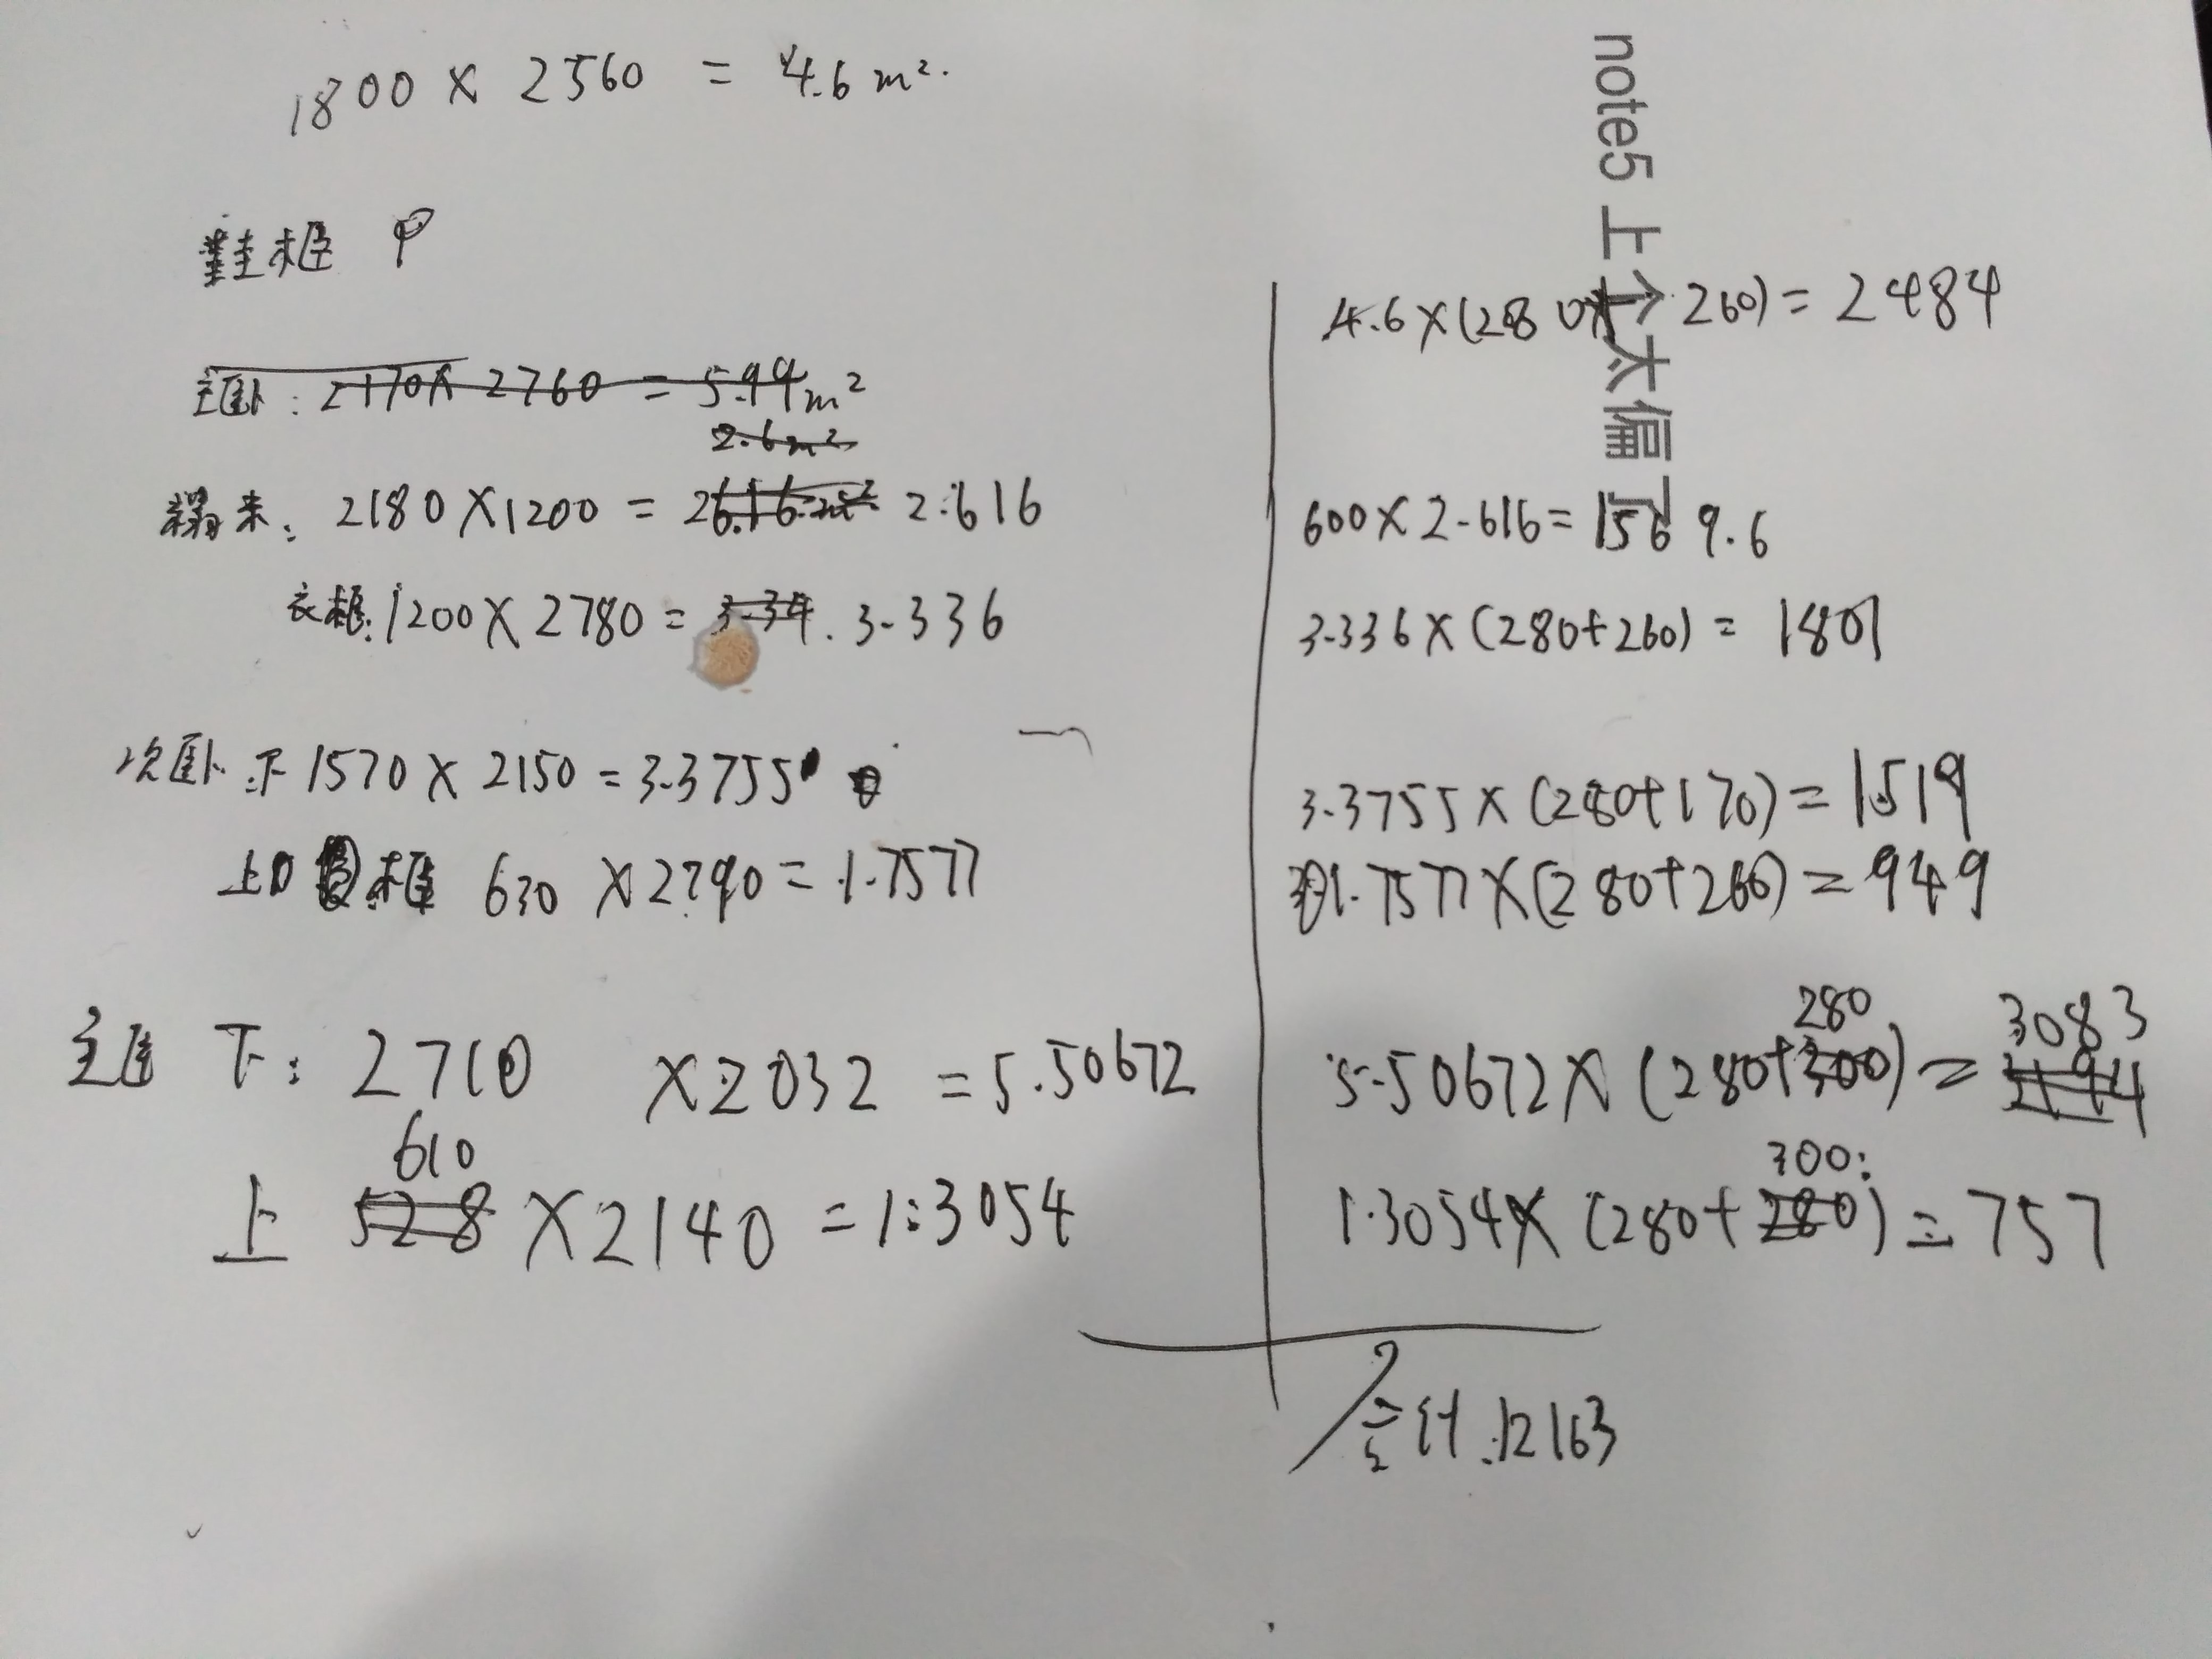 1800 × 2560 = 4.6 m².
鞋柜
主卧: 2170× 2760 = 5.99m²
2.6m²
榻米: 2180×1200 = 2.616
衣柜: 1200×2780 = 3.34. 3.336
次卧 下 1570 × 2150 = 3.3755
上 柜 630 ×2790 = 1.7577
主卧 下: 2710 ×2032 = 5.50672
610
上 528 ×2140 = 1.3054
note5 上个太偏了
4.6×(280+ 260) = 2484
600×2.616= 1569.6
3.336×(280+260) = 1801
3.3755×(280+170) = 1519
1.7577×(280+260) = 949
280 3083
5.50672×(280+300) = 3194
300
1.3054×(280+280) = 757
合计:12163